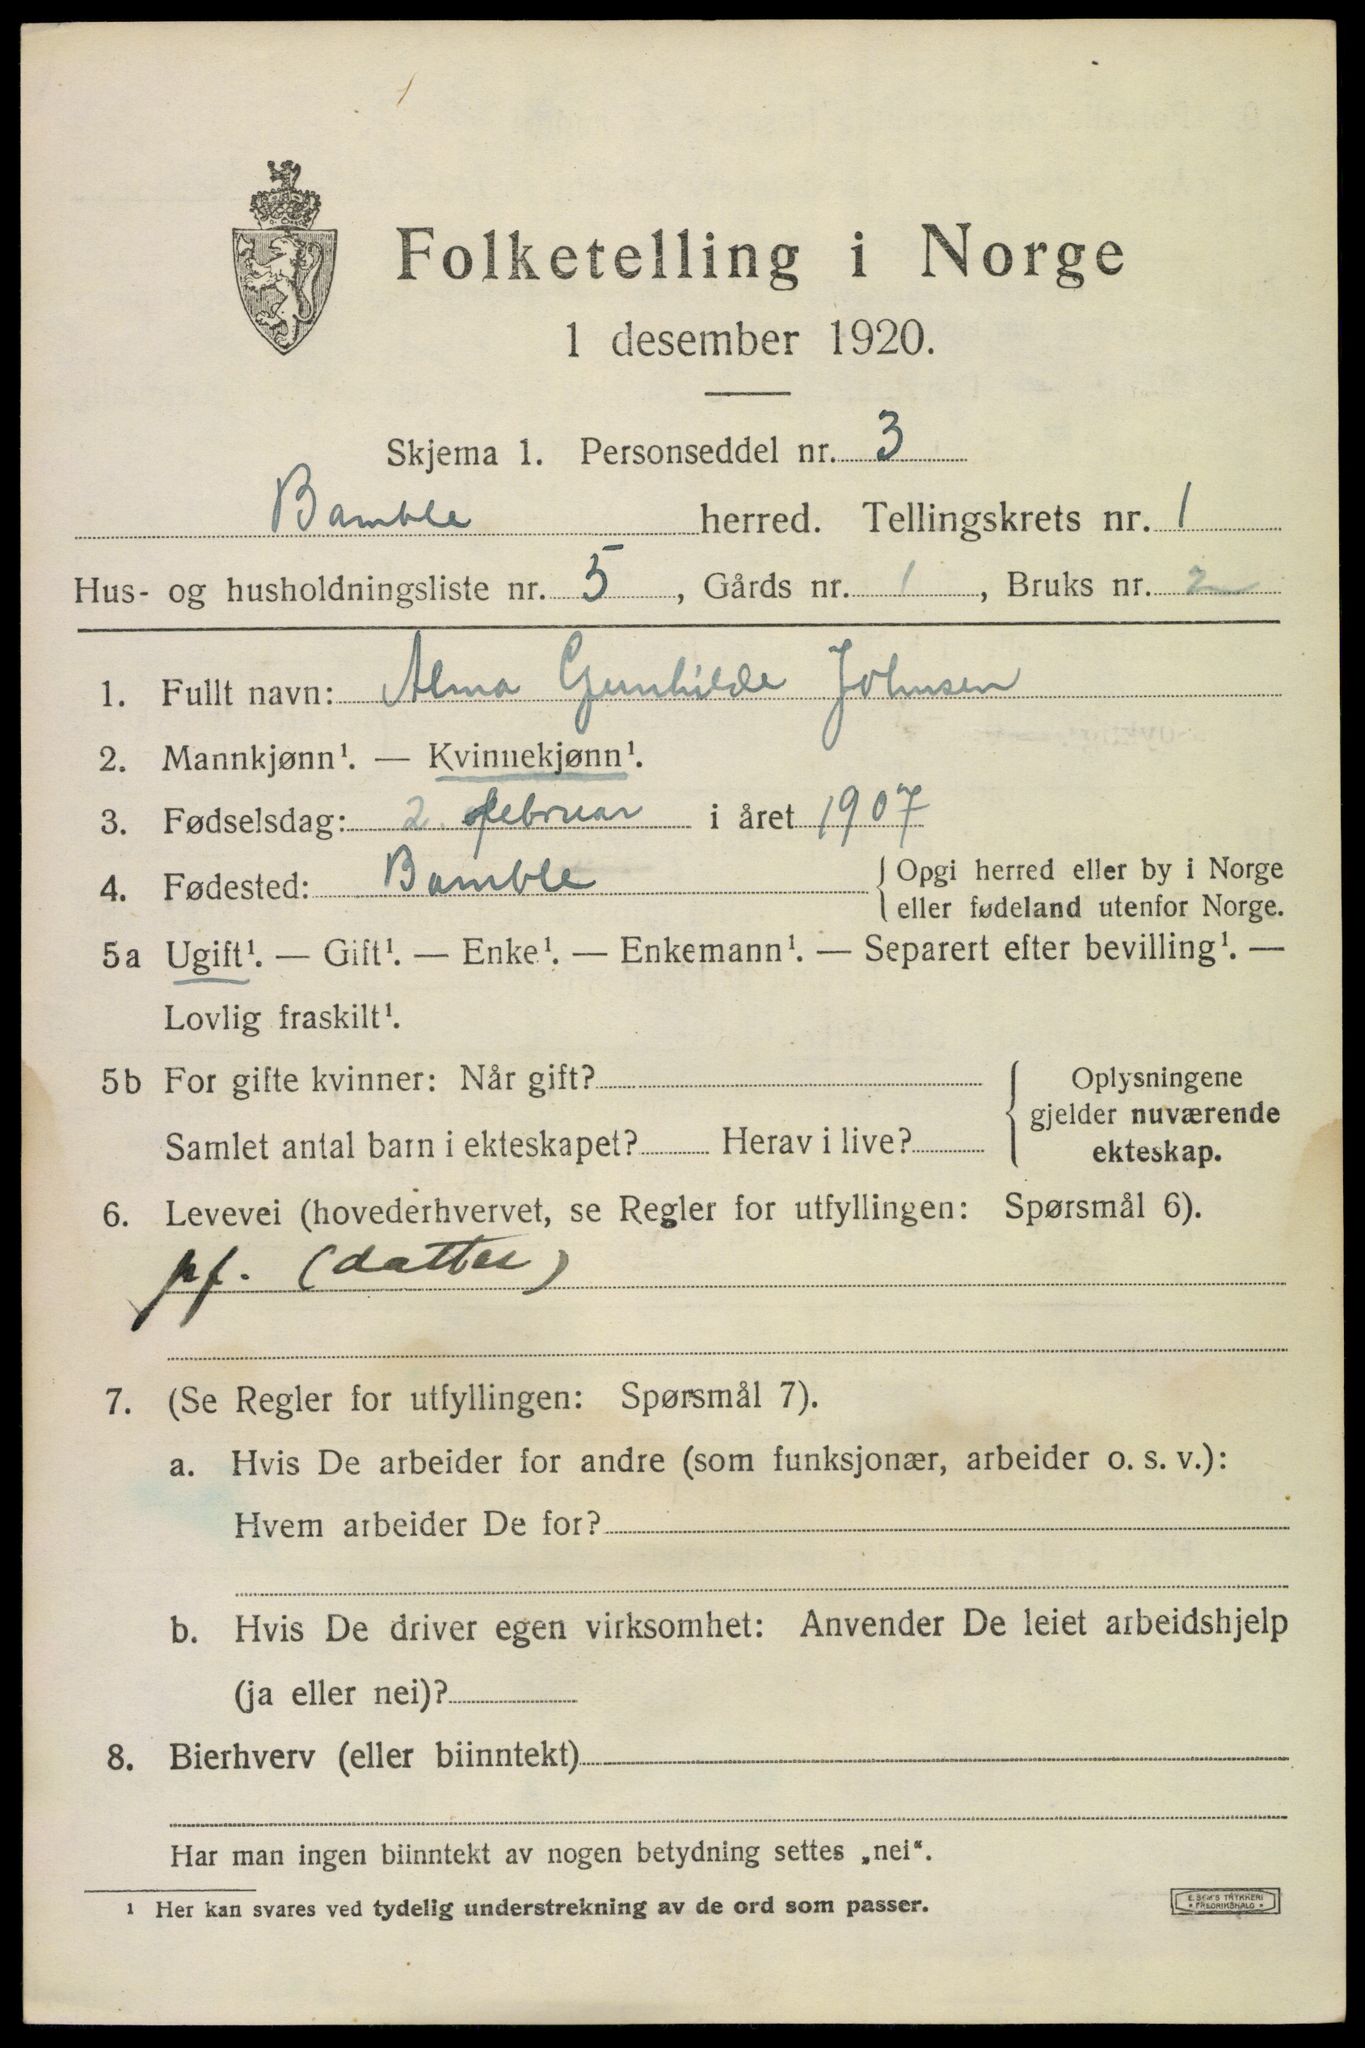 Folketelling i Norge
1 desember 1920.
Skjema 1. Personseddel nr. 3
Bamble herred. Tellingskrets nr. 1
Hus- og husholdningsliste nr. 5, Gårds nr. 1, Bruks nr. 2
1. Fullt navn: Alma Gunhilde Johnsen
2. Mannkjønn¹. — Kvinnekjønn¹.
3. Fødselsdag: 2. februar i året 1907
4. Fødested: Bamble { Opgi herred eller by i Norge
eller fødeland utenfor Norge.
5a Ugift¹. — Gift¹. — Enke¹. — Enkemann¹. — Separert efter bevilling¹. —
Lovlig fraskilt¹.
5b For gifte kvinner: Når gift?
Samlet antal barn i ekteskapet? Herav i live?
{ Oplysningene
gjelder nuværende
ekteskap.
6. Levevei (hovederhvervet, se Regler for utfyllingen: Spørsmål 6).
pf. (datter)
7. (Se Regler for utfyllingen: Spørsmål 7).
a. Hvis De arbeider for andre (som funksjonær, arbeider o. s. v.):
Hvem arbeider De for?
b. Hvis De driver egen virksomhet: Anvender De leiet arbeidshjelp
(ja eller nei)?
8. Bierhverv (eller biinntekt)
Har man ingen biinntekt av nogen betydning settes „nei“.
¹ Her kan svares ved tydelig understrekning av de ord som passer.
E. SEM'S TRYKKERI
* FREDRIKSHALD *